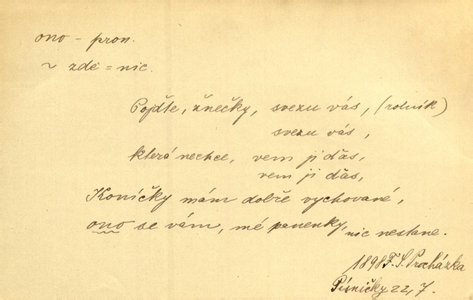 ono – pron.
~ zdě = nic.
Pojďte, žnečky, svezu vás, (rolník)
svezu vás,
která nechce, vem ji ďas,
vem ji ďas,
Koníčky mám dobře vychované,
ono se vám, mé panenky, nic nestane.
1898 F. S. Procházka
Písničky 22, 7.